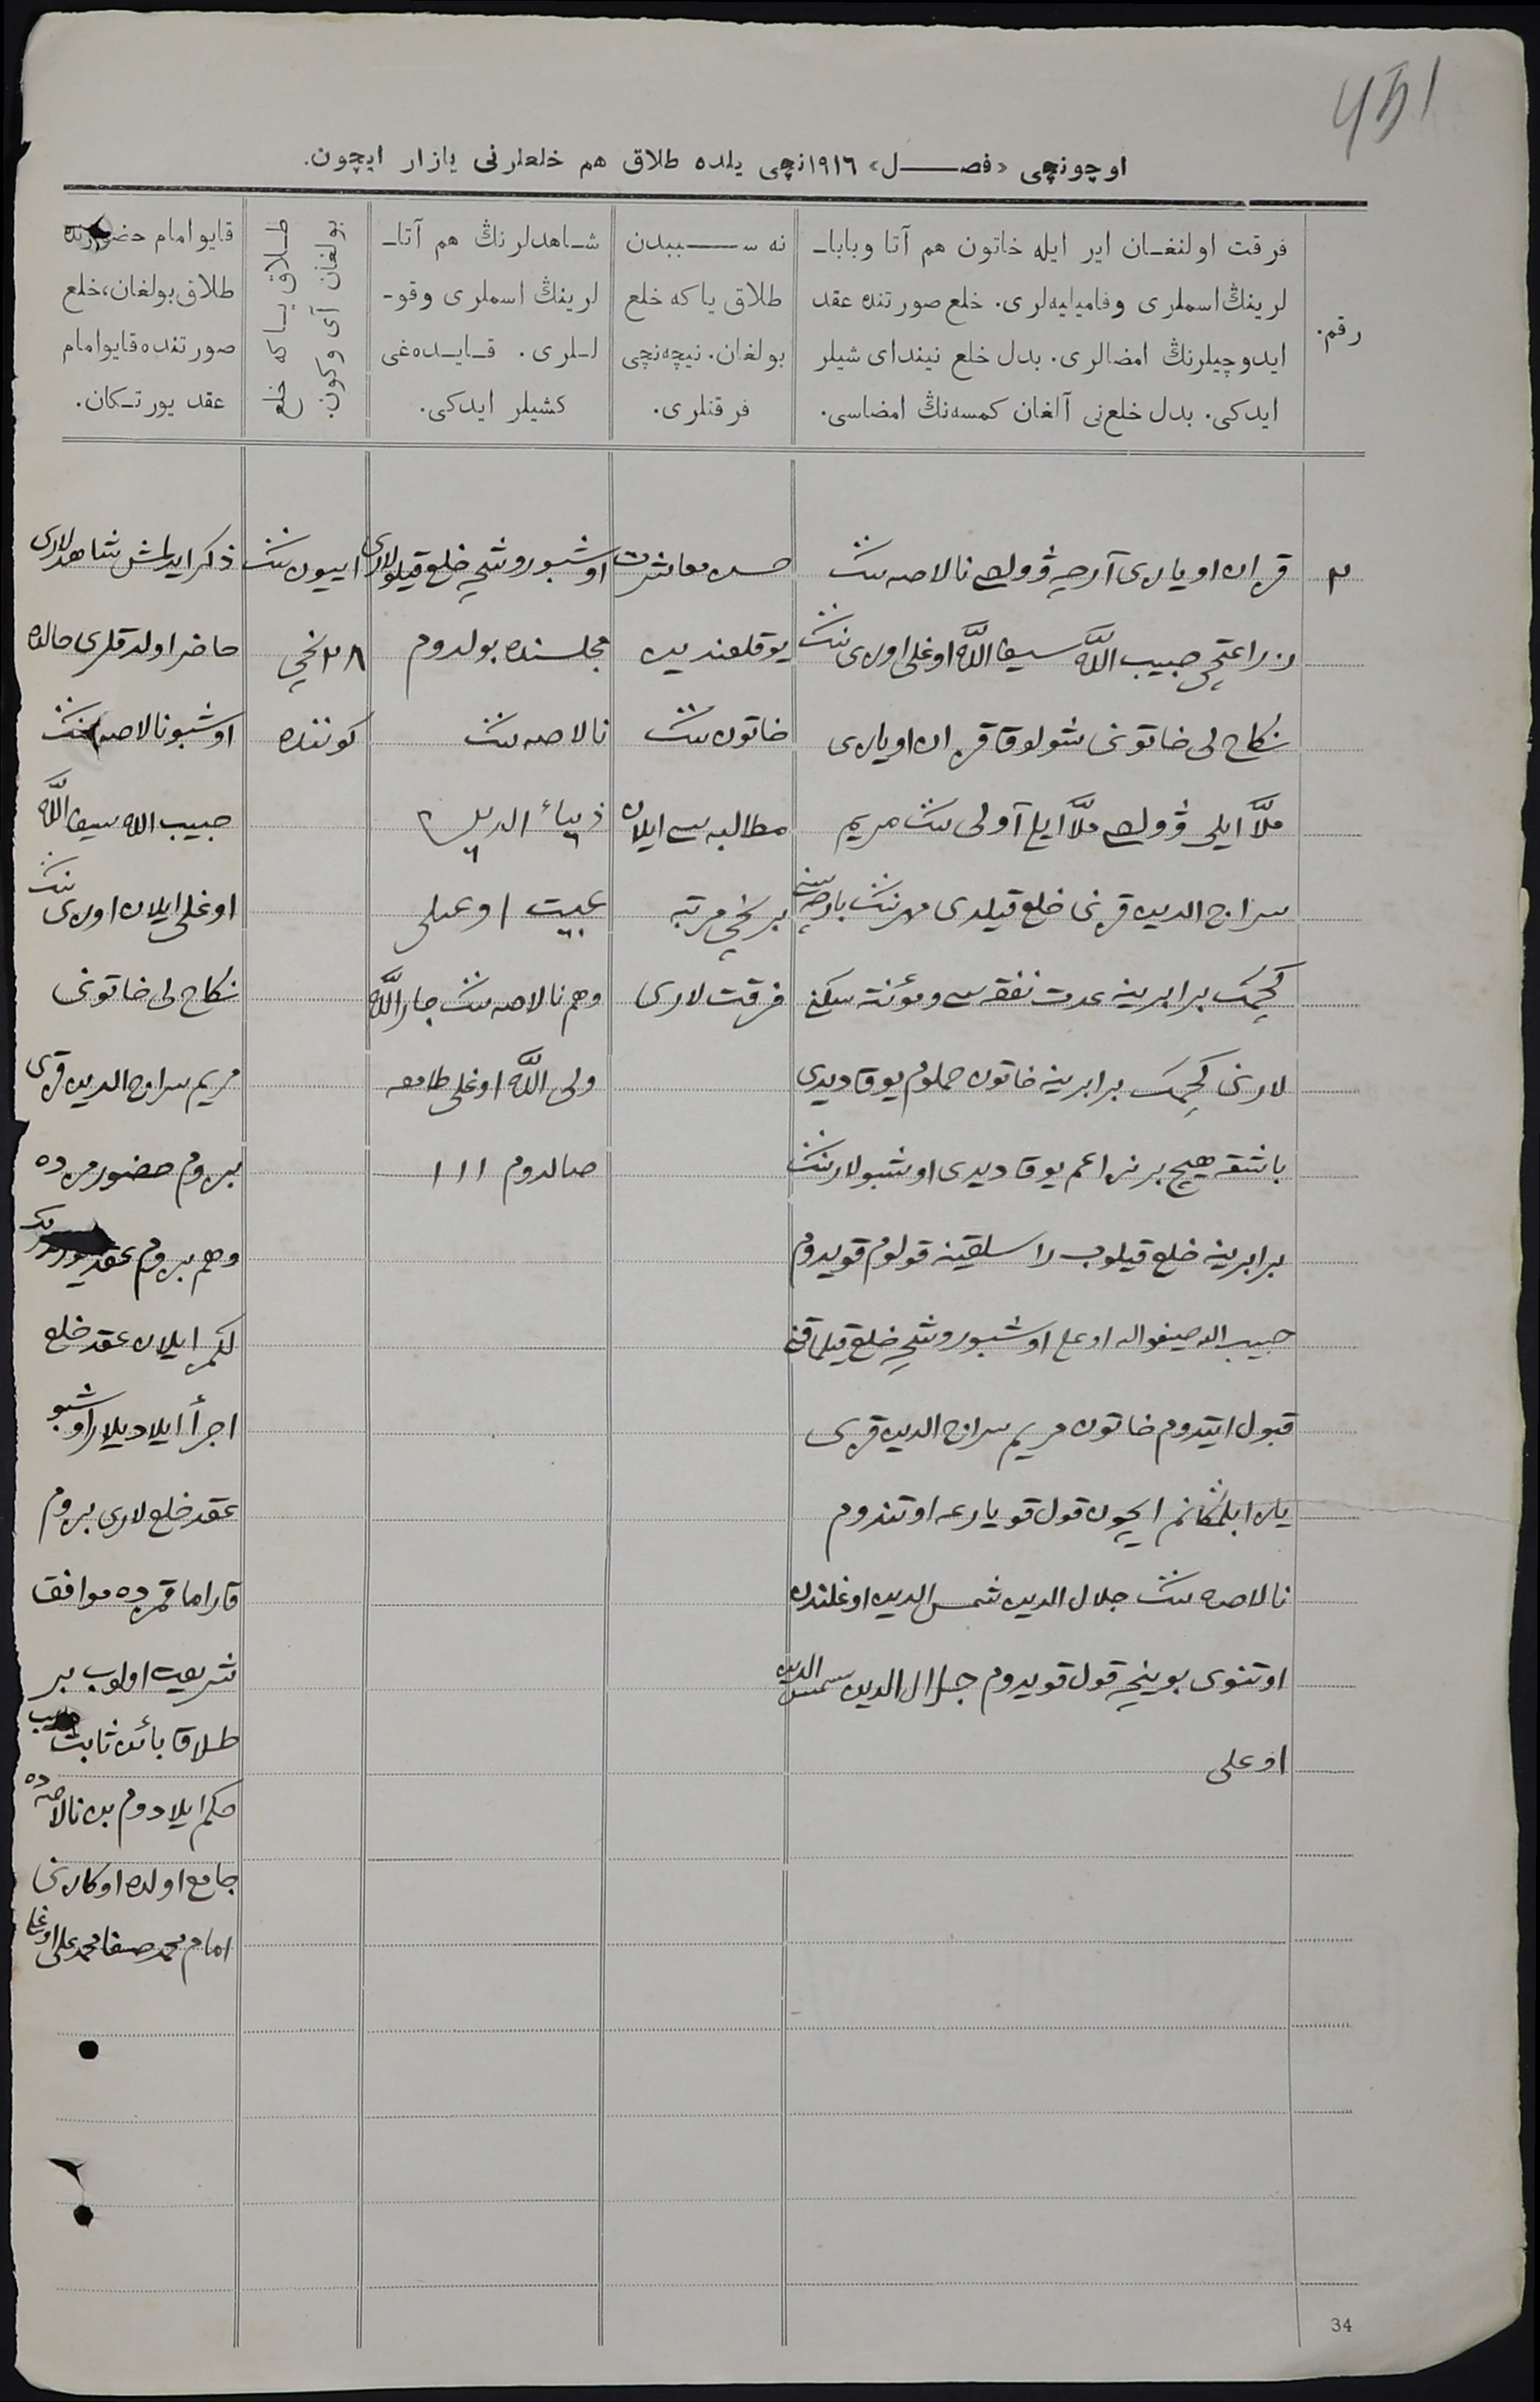 451
اوچونچی «فصل» ١٩١٦نچی یلده طلاق هم خلعلرنی یازار ایچون.
رقم.
فرقت اولنغان ایر ایله خاتون هم آتا وبابا-
لرینڭ اسملری وفامیلیه‌لری. خلع صورتنده عقد
ایدوچیلرنڭ امضالری. بدل خلع نیندای شیلر
ایدکی. بدل خلع‌نی آلغان کمسه‌نڭ امضاسی.
نه سببدن
طلاق یاکه خلع
بولغان. نیچه‌نچی
فرقتلری.
شاهدلرنڭ هم آتا-
لرینڭ اسملری وقو-
للری. قایده‌غی
کشیلر ایدکی.
طلاق یاکه خلع
بولغان آی وکون.
قایو امام حضورنده
طلاق بولغان، خلع
صورتنده قایو امام
عقد یورتکان.
٢
قزان اویازی آرچه ڤولصی نالاصه ننڭ
زراعتچی حبیب الله سیف الله اوغلی اوزی ننڭ
نکاح لی خاتونی شولوق قزان اویازی
ملّا ایلی ڤولصی ملّا ایلی آولی ننڭ مریم
سراج الدین قزنی خلع قیلدی مهرننڭ بارچه سینه
کچمک برابرینه عدت نفقه سی ومؤنت سکنی
لارنی کچمک برابرینه خاتون حملوم یوق دیدی
باشقه هیچ بر نزاعم یوق دیدی اوشبولارننڭ
برابرینه خلع قیلوب راسلقینه قولوم قویدوم
حبیب الله صیفوالله اوغلی اوشبو روشچه خلع قیلماقنی
قبول ایتدوم خاتون مریم سراج الدین قزی
یازا بلمکانم ایچون قول قویارغه اوتندوم
نالاصه ننڭ جلال الدین شمس الدین اوغلندن
اوتنوی بوینچه قول قویدوم جلال الدین شمس الدین
اوغلی
حسن معاشرت
یوقلغندین
خاتون ننڭ
مطالبه سی ایلان
برنچی مرتبه
فرقت لاری
اوشبو روشچه خلع قیلولاری
مجلسنده بولدوم
نالاصه ننڭ
عبیت اوغلی
وهم نالاصه ننڭ جار الله
ولی الله اوغلی طامغه
صالدوم ااا
اییون ننڭ
٢٨نچی
کوننده
ذکر ایدلمش شاهدلاری
حاضر اولدقلری حالده
اوشبو نالاصه ننڭ
حبیب الله سیف الله
اوغلی ایلان اوزی ننڭ
نکاح لی خاتونی
مریم سراج الدین قزی
بروم حضورمزده
وهم بروم عقد
لکمز ایلان عقد خلع
اجرأ ایلادیلار اوشبو
عقد خلع لاری بروم
قاراماقمزده موافق
شریعت اولوب بر
طلاق بائن ثابت
حکم ایلادوم بن نالاصه ده
جامع اولده اوکازنی
امام محمد صفا محمد علی اوغلی
34